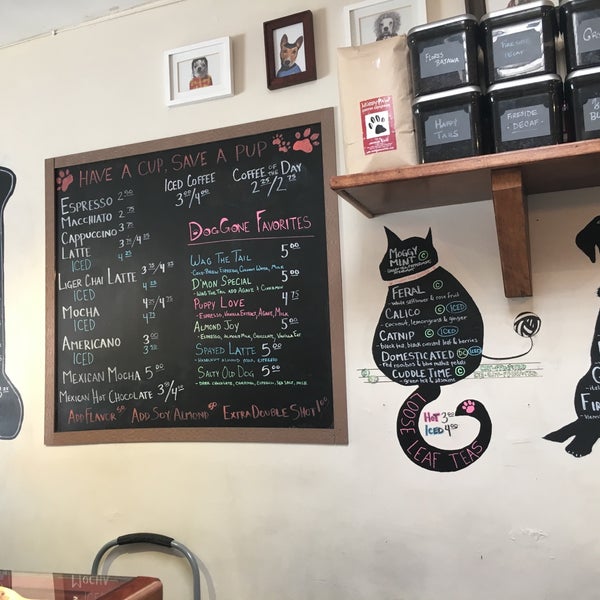 HAVE A CUP, SAVE A PUP
ESPRESSO 2.00
MACCHIATO 2.75
CAPPUCCINO 3.75
LATTE 3.75/4.25
ICED 4.25
LIGER CHAI LATTE 3.75/4.25
ICED 4.25
MOCHA 4.25/4.75
ICED 4.75
AMERICANO 3.00
ICED 3.50
MEXICAN MOCHA 5.00
MEXICAN HOT CHOCOLATE 3.50/4.00
ICED COFFEE
3.00/4.00
COFFEE OF THE DAY
2.25/2.75
DOGGONE FAVORITES
WAG THE TAIL 5.00
- COLD-BREW ESPRESSO, COCONUT WATER, MILK
D'MON SPECIAL 5.00
- WAG THE TAIL ADD AGAVE & CINNAMON
PUPPY LOVE 4.75
- ESPRESSO, VANILLA EXTRACT, AGAVE, MILK
ALMOND JOY 5.00
- ESPRESSO, ALMOND MILK, CHOCOLATE, VANILLA EXT
SPAYED LATTE 5.00
SALTY OLD DOG 5.00
- DARK CHOCOLATE, CARAMEL, ESPRESSO, SEA SALT, MILK
ADD FLAVOR .50 ADD SOY ALMOND .50 EXTRA DOUBLE SHOT 1.00
FLORES BAJAWA
FIRESIDE DECAF
HAPPY TAILS
FIRESIDE
- DECAF -
MOGGY MINT C
FERAL C
- white sunflower & rose fruit
CALICO C ICED
- coconut, lemongrass & ginger
CATNIP C ICED
- black tea, black currant leaf & berries
DOMESTICATED DC ICED
- red rooibos & blue mallow petals
CUDDLE TIME C
- green tea & jasmine
HOT 3.00
ICED 4.00
LOOSE LEAF TEAS